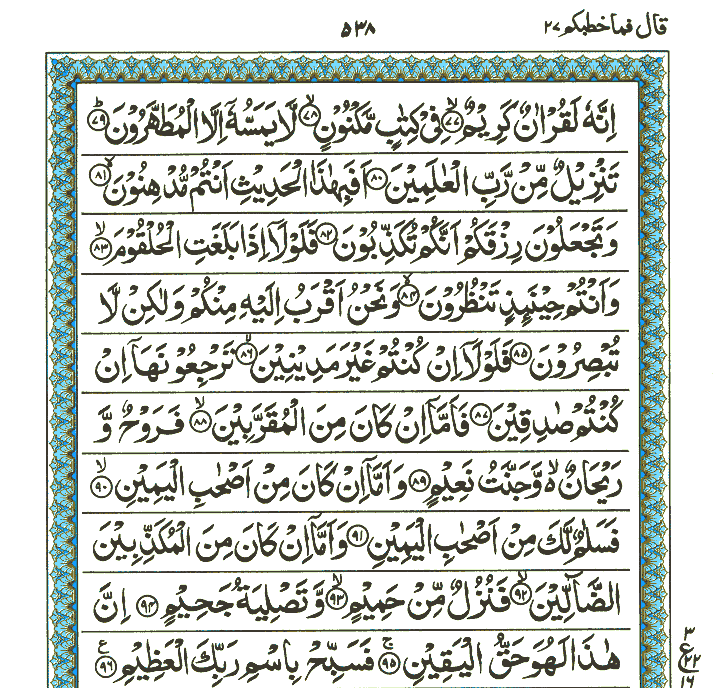 قال فما خطبكم ٢٧
٥٣٨
اِنَّهٗ لَقُرْاٰنٌ كَرِيْمٌ ﴿٧٧﴾ۙ فِيْ كِتٰبٍ مَّكْنُوْنٍ ﴿٧٨﴾ۙ لَّا يَمَسُّهٗٓ اِلَّا الْمُطَهَّرُوْنَ ﴿٧٩﴾ؕ
تَنْزِيْلٌ مِّنْ رَّبِّ الْعٰلَمِيْنَ ﴿٨٠﴾ اَفَبِهٰذَا الْحَدِيْثِ اَنْتُمْ مُّدْهِنُوْنَ ﴿٨١﴾ۙ
وَتَجْعَلُوْنَ رِزْقَكُمْ اَنَّكُمْ تُكَذِّبُوْنَ ﴿٨٢﴾ فَلَوْلَآ اِذَا بَلَغَتِ الْحُلْقُوْمَ ﴿٨٣﴾ۙ
وَاَنْتُمْ حِيْنَئِذٍ تَنْظُرُوْنَ ﴿٨٤﴾ۙ وَنَحْنُ اَقْرَبُ اِلَيْهِ مِنْكُمْ وَلٰكِنْ لَّا
تُبْصِرُوْنَ ﴿٨٥﴾ فَلَوْلَآ اِنْ كُنْتُمْ غَيْرَ مَدِيْنِيْنَ ﴿٨٦﴾ۙ تَرْجِعُوْنَهَآ اِنْ
كُنْتُمْ صٰدِقِيْنَ ﴿٨٧﴾ فَاَمَّآ اِنْ كَانَ مِنَ الْمُقَرَّبِيْنَ ﴿٨٨﴾ۙ فَرَوْحٌ وَّ
رَيْحَانٌ ۙ۬ وَّجَنَّتُ نَعِيْمٍ ﴿٨٩﴾ وَاَمَّآ اِنْ كَانَ مِنْ اَصْحٰبِ الْيَمِيْنِ ﴿٩٠﴾ۙ
فَسَلٰمٌ لَّكَ مِنْ اَصْحٰبِ الْيَمِيْنِ ﴿٩١﴾ وَاَمَّآ اِنْ كَانَ مِنَ الْمُكَذِّبِيْنَ
الضَّآلِّيْنَ ﴿٩٢﴾ۙ فَنُزُلٌ مِّنْ حَمِيْمٍ ﴿٩٣﴾ۙ وَّتَصْلِيَةُ جَحِيْمٍ ﴿٩٤﴾ اِنَّ
هٰذَا لَهُوَ حَقُّ الْيَقِيْنِ ﴿٩٥﴾ۚ فَسَبِّحْ بِاسْمِ رَبِّكَ الْعَظِيْمِ ﴿٩٦﴾ع
٣
ع
٢٢
١٦